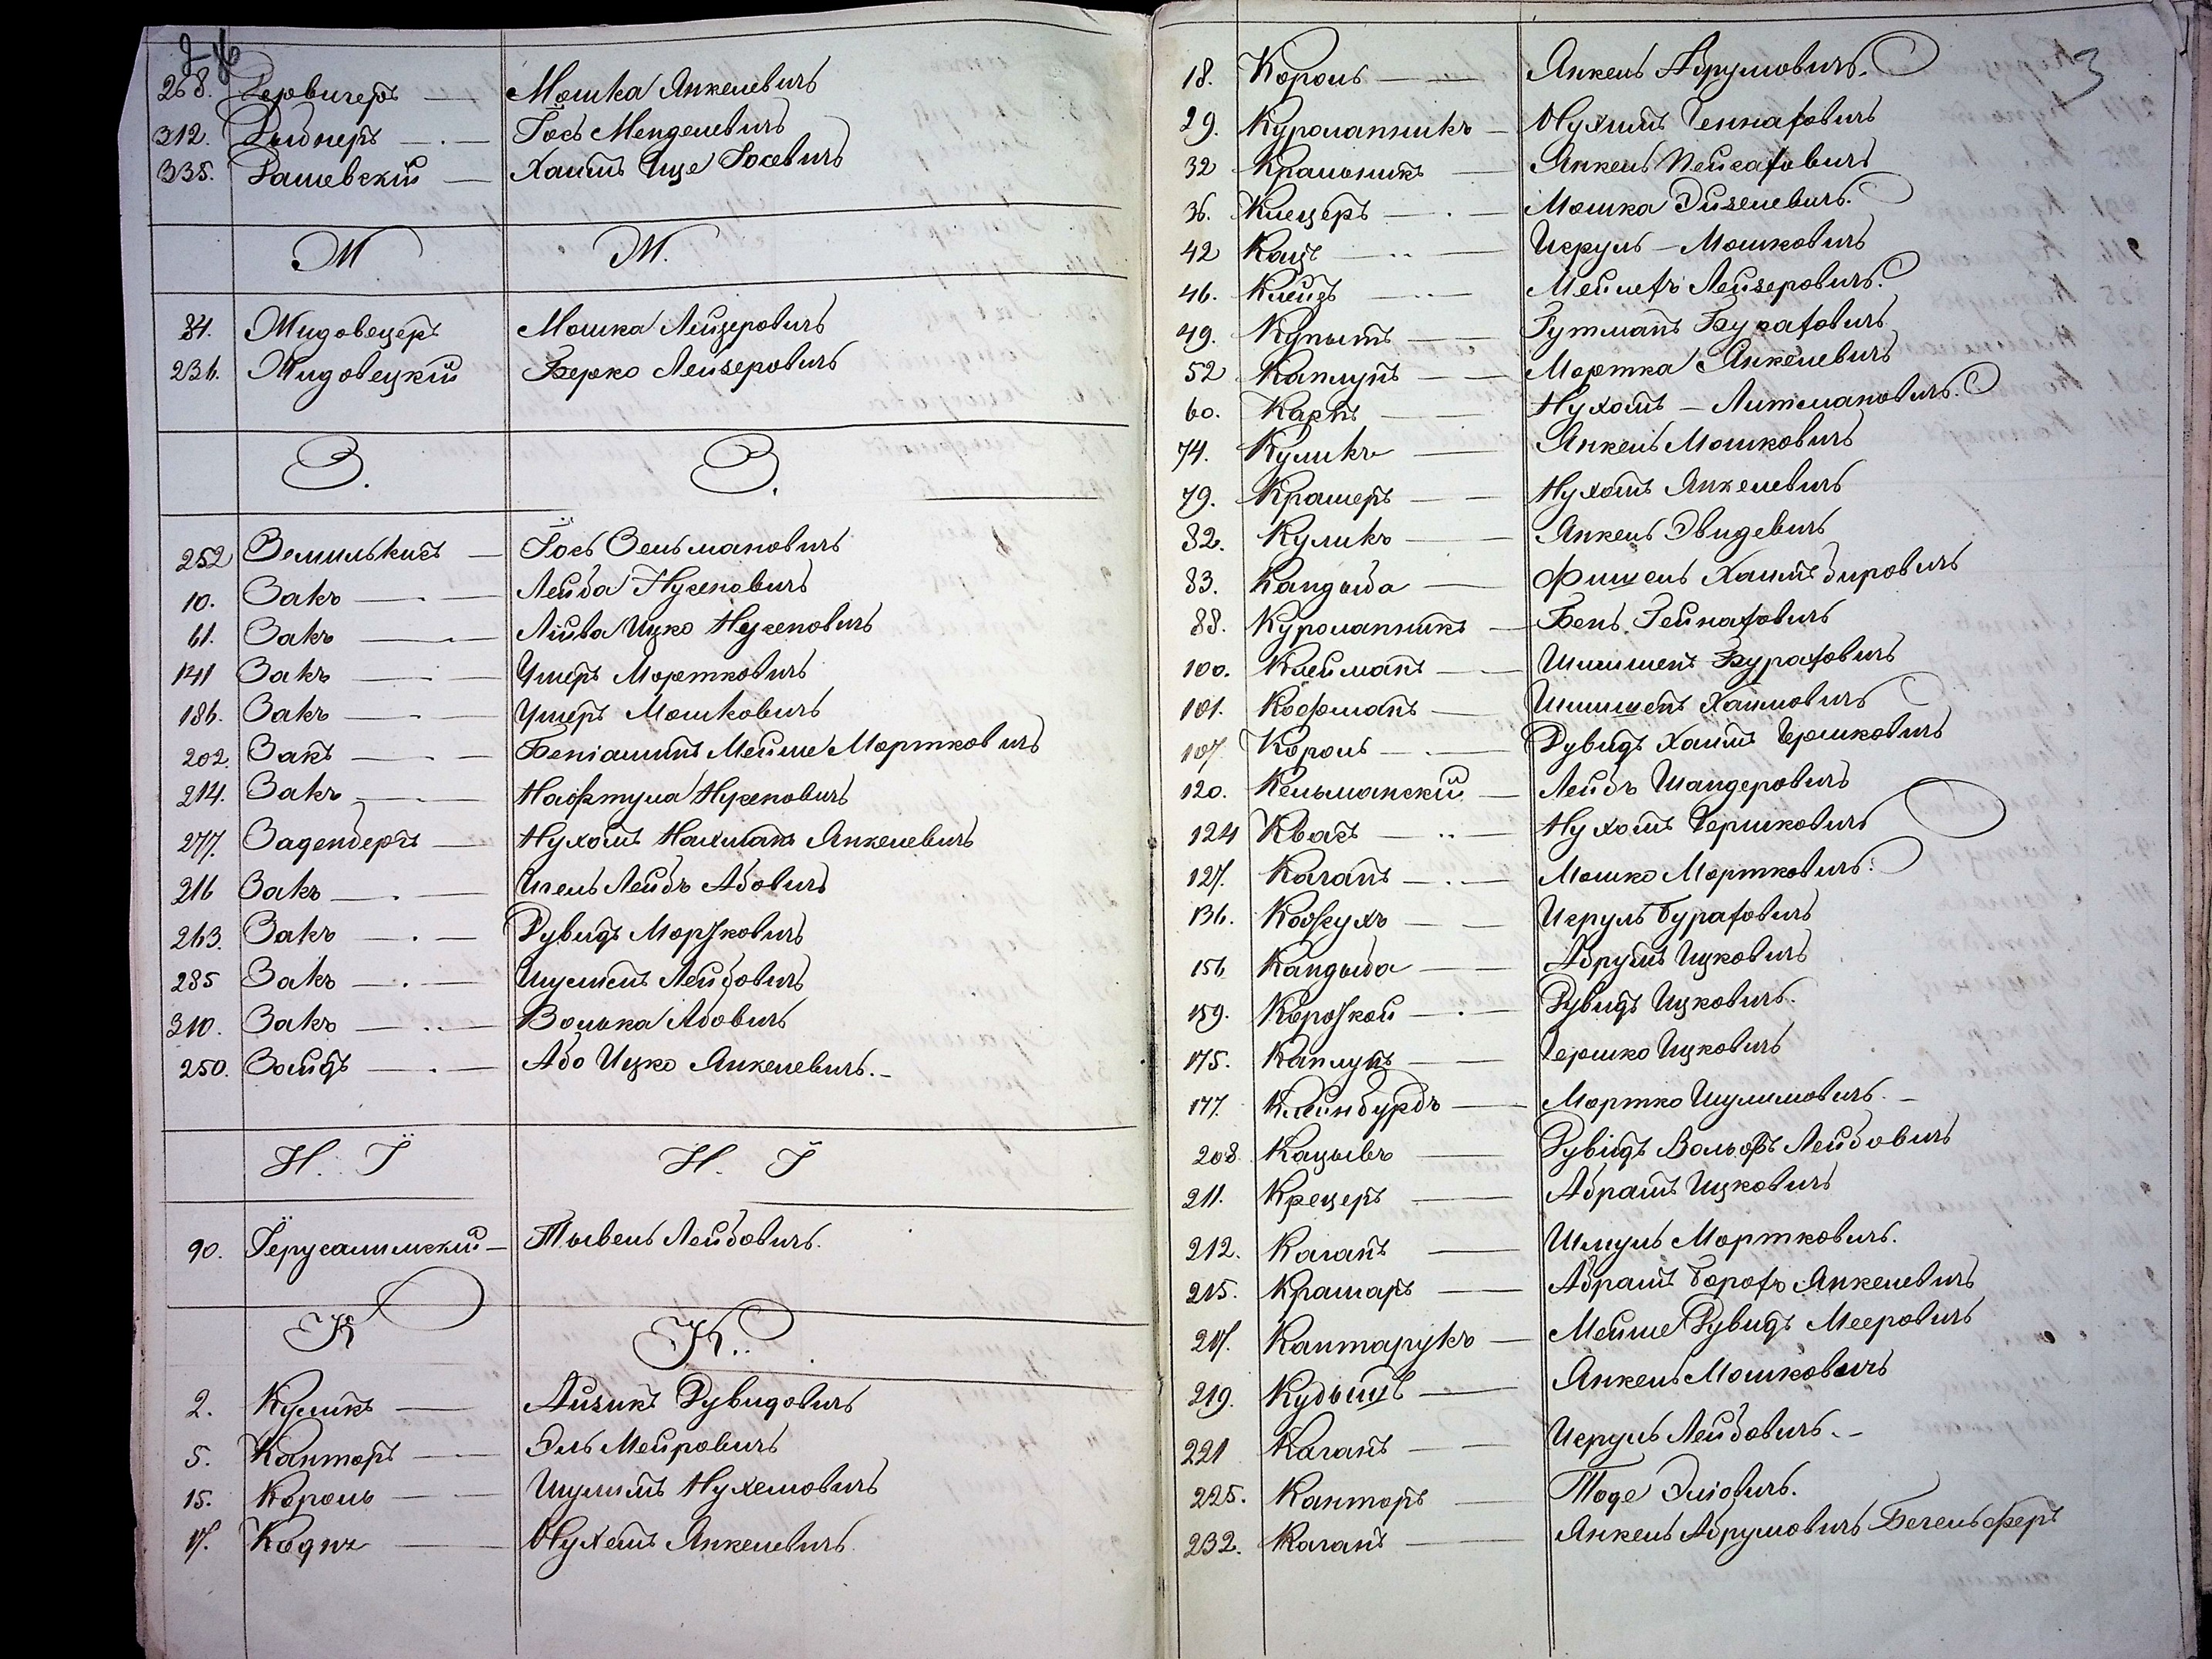 268. Мошка Янкелевичъ
312. Іось Менделевичъ
335. Рашевскій Хаимъ Іосевичъ
Ж Ж.
84. Жидовецеръ Мошка Лейзеровичъ
236. Жидовецкій Берко Лейзеровичъ
З. З.
252 Іось Зельмановичъ
10. Закъ Лейба Нусеновичъ
61. Закъ Лейва Ицко Нусеновичъ
141 Закъ Ушеръ Мортковичъ
186. Закъ Ушеръ Мошковичъ
202. Закъ Беніаминъ Мейше Мортковичъ
214. Закъ Нафтула Нусеновичъ
277. Заденбергъ Нухомъ Нахманъ Янкелевичъ
216 Закъ Лейбъ Абовичъ
263. Закъ Дувидъ Мортковичъ
285 Закъ Лейбовичъ
310. Закъ Волька Абовичъ
250. Зайдъ Або Ицко Янкелевичъ.
И. І И. І
90. Іерусалимскій Тывель Лейбовичъ.
К К.
2. Куликъ Айзикъ Дувидовичъ
5. Канторъ Эль Меировичъ
15. Король Шулимъ Нухемовичъ
17. Нухемъ Янкелевичъ
3
18. Король Янкель Абрумовичъ.
29. Куролапникъ Нухимъ
32 Крамникъ Янкель Пейсаховичъ
36. Клецеръ Мошка Эйзелевичъ.
42 Кацъ Исруль Мошковичъ
46. Клейдъ Мейлехъ Лейзеровичъ.
49. Купытъ Гутманъ Бураховичъ
52 Каплунъ Мортка Янкелевичъ
60. Карпъ Нухомъ Литмановичъ.
74. Куликъ Янкель Мошковичъ
79. Крамеръ Нухомъ Янкелевичъ
82. Куликъ Янкель Двидевичъ
83. Кандыба Фишель Хаимъ
88. Куролапникъ Бень
100. Клейманъ Бураховичъ
101. Кофманъ Хаимовичъ
107. Король Дувидъ Хаимъ Гершковичъ
120. Кельманскій Лейбъ Шандеровичъ
124 Квасъ Нухомъ Гершковичъ
127. Каганъ Мошко Мортковичъ.
136. Исруль Бураховичъ
156 Кандыба Абрумъ Ицковичъ
159. Короткой Дувидъ Ицковичъ.
175. Каплунъ Гершко Ицковичъ
177. Клейнбурдъ Мортко Шулимовичъ.
208. Кацывъ Дувидъ Вольфъ Лейбовичъ
211. Крецеръ Абрамъ Ицковичъ
212. Каганъ Шмуль Мортковичъ.
215. Крамаръ Абрамъ Борохъ Янкелевичъ
217. Кантарукъ Мейше Дувидъ Мееровичъ
219. Янкель Мошковичъ
221 Каганъ Исруль Лейбовичъ.
225. Канторъ Тоде Эліовичъ.
232. Каганъ Янкель Абрумовичъ